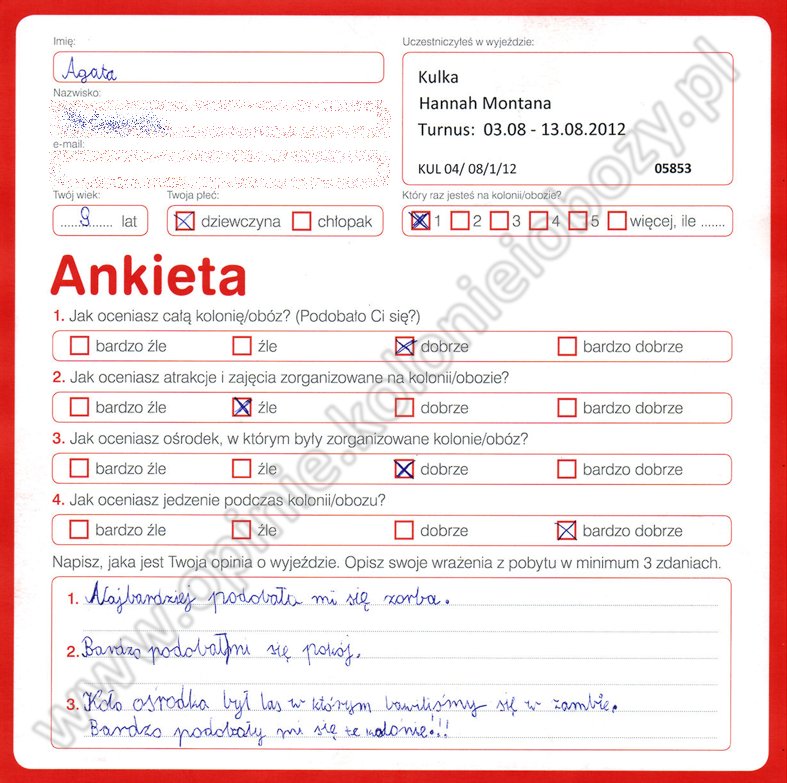 Imię:
Agata
Uczestniczyłeś w wyjeździe:
Kulka
Hannah Montana
Turnus: 03.08 - 13.08.2012
KUL 04/ 08/1/12 05853
Nazwisko:
e-mail:
Twój wiek:
9 lat
Twoja płeć:
dziewczyna chłopak
Który raz jesteś na kolonii/obozie?
1 2 3 4 5 więcej, ile .......
Ankieta
1. Jak oceniasz całą kolonię/obóz? (Podobało Ci się?)
bardzo źle źle dobrze bardzo dobrze
2. Jak oceniasz atrakcje i zajęcia zorganizowane na kolonii/obozie?
bardzo źle źle dobrze bardzo dobrze
3. Jak oceniasz ośrodek, w którym były zorganizowane kolonie/obóz?
bardzo źle źle dobrze bardzo dobrze
4. Jak oceniasz jedzenie podczas kolonii/obozu?
bardzo źle źle dobrze bardzo dobrze
Napisz, jaka jest Twoja opinia o wyjeździe. Opisz swoje wrażenia z pobytu w minimum 3 zdaniach.
1. Najbardziej podobała mi się zorba.
2. Bardzo podobał mi się pokój.
3. Koło ośrodka był las w którym bawiliśmy się w zambie.
Bardzo podobały mi się te kolonie!!!
www.opinie.kolonieiobozy.pl